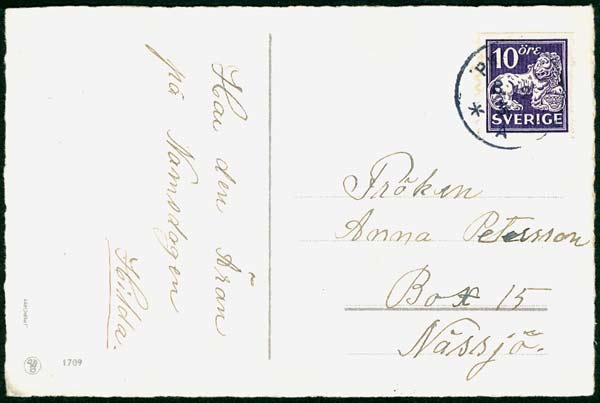 Hav den Äran
på Namsdagen
Hilda.
10 öre
SVERIGE
Fröken
Anna Petersson
Box 15
Nässjö.
1709